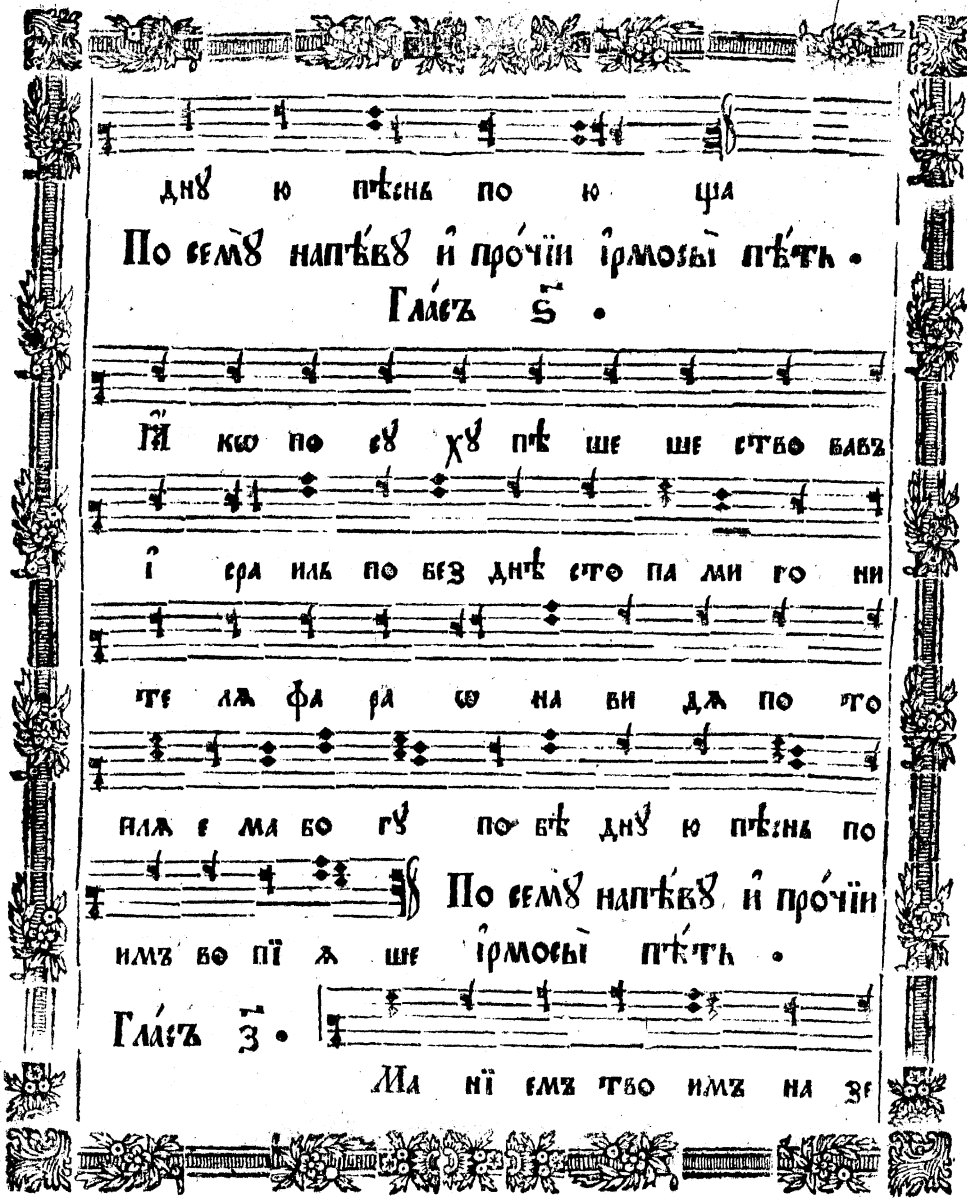 днꙋ ю пѣснь по ю ща
По семꙋ̀ напѣ́вꙋ и҆ про́чїи і҆рмосы̀ пѣ́ть .
Гла́съ ѕ҃ .
Ꙗ҆́ кѡ по сꙋ хꙋ пѣ ше ше ство вавъ
і҆ сра иль по без днѣ сто па ми го ни
те лѧ фа ра ѡ на ви дѧ по то
плѧ е ма бо гꙋ по бѣ днꙋ ю пѣснь по
По семꙋ̀ напѣ́вꙋ и҆ про́чїи
имъ во пї ѧ ше і҆рмосы̀ пѣ́ть .
Гла́съ з҃ .
Ма нї емъ тво имъ на зе